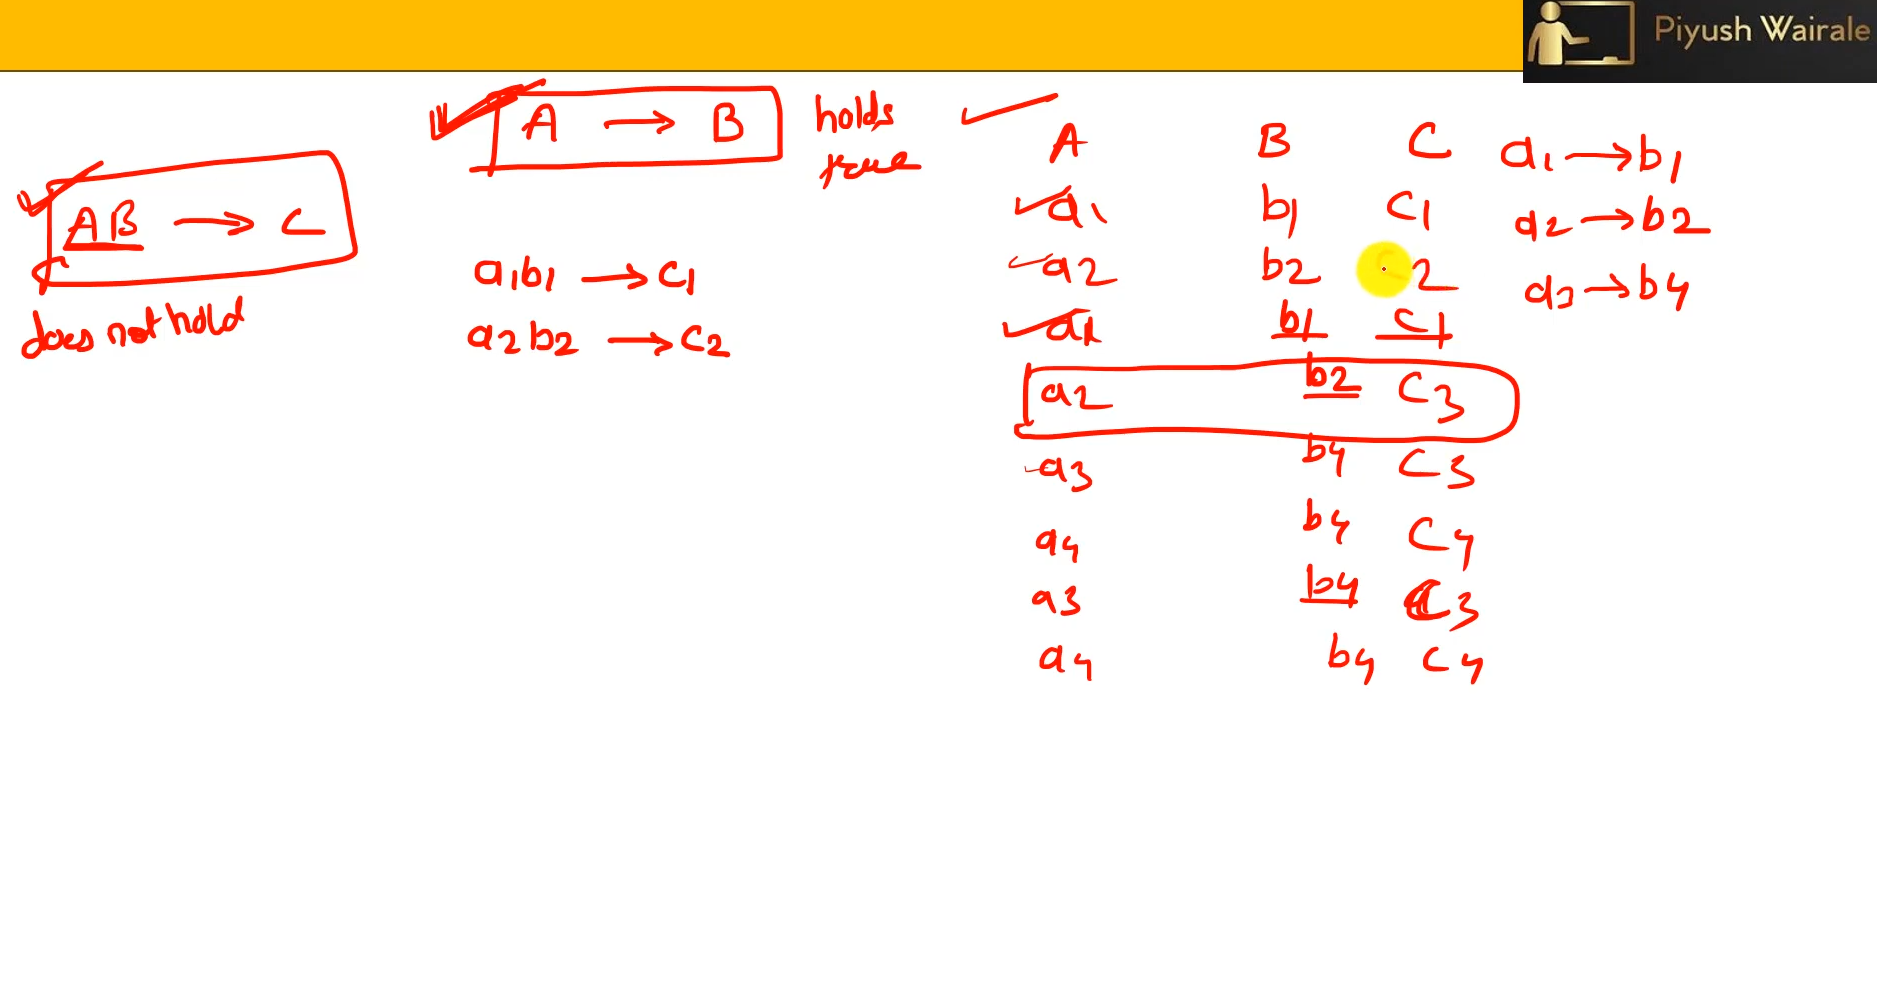 Piyush Wairale
A → B holds true
AB → C
does not hold
a1b1 → C1
a2b2 → C2
A B C
a1 b1 C1
a2 b2 C2
a1 b1 C1
a2 b2 C3
a3 b4 C3
a4 b4 C4
a3 b4 C3
a4 b4 C4
a1 → b1
a2 → b2
a3 → b4